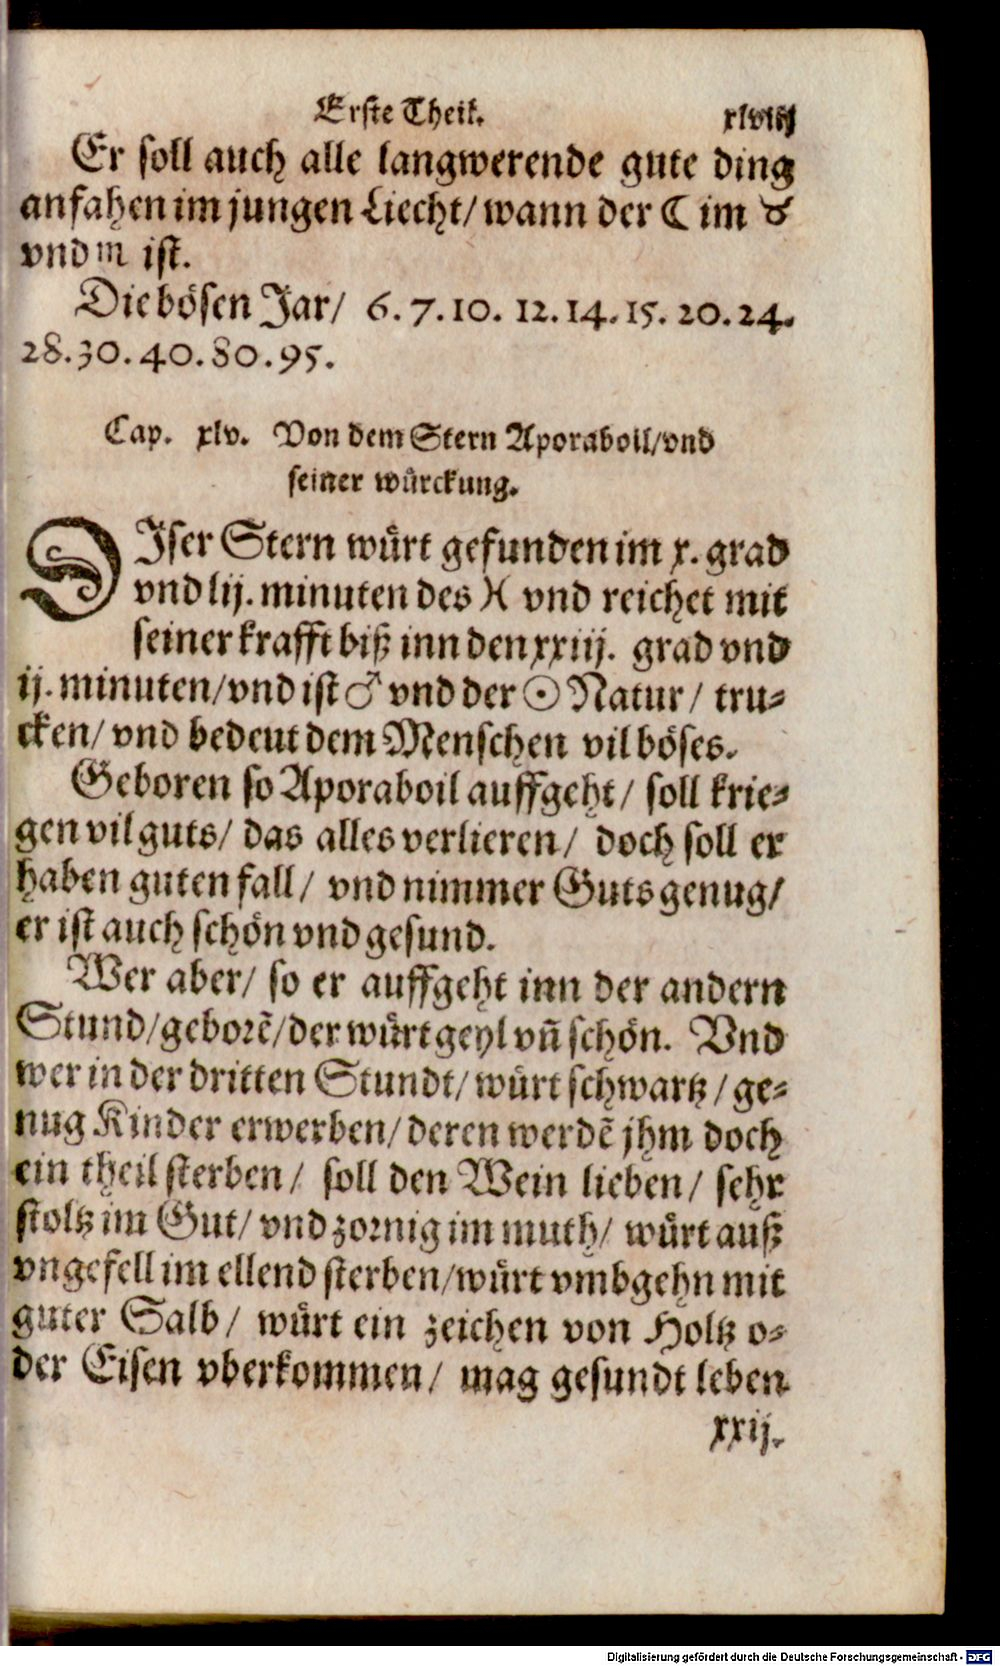 Erste Theil. xlviij
Er soll auch alle langwerende gute ding
anfahen im jungen Liecht/ wann der ☾ im ♉
vnd ♏ ist.
Die bösen Jar/ 6. 7. 10. 12. 14. 15. 20. 24.
28. 30. 40. 80. 95.
Cap. xlv. Von dem Stern Aporaboil/ vnd
seiner würckung.
DIser Stern würt gefunden im x. grad
vnd lij. minuten des ♓ vnd reichet mit
seiner krafft biß inn den xxiij. grad vnd
ij. minuten/ vnd ist ♂ vnd der ☉ Natur/ tru⸗
cken/ vnd bedeut dem Menschen vil böses.
Geboren so Aporaboil auffgeht/ soll krie⸗
gen vil guts/ das alles verlieren/ doch soll er
haben guten fall/ vnd nimmer Guts genug/
er ist auch schön vnd gesund.
Wer aber/ so er auffgeht inn der andern
Stund/ geborẽ/ der würt geyl vñ schön. Vnd
wer in der dritten Stundt/ würt schwartz/ ge⸗
nug Kinder erwerben/ deren werdẽ jhm doch
ein theil sterben/ soll den Wein lieben/ sehr
stoltz im Gut/ vnd zornig im muth/ würt auß
vngefell im ellend sterben/ würt vmbgehn mit
guter Salb/ würt ein zeichen von Holtz o⸗
der Eisen vberkommen/ mag gesundt leben
xxij.
Digitalisierung gefördert durch die Deutsche Forschungsgemeinschaft - DFG